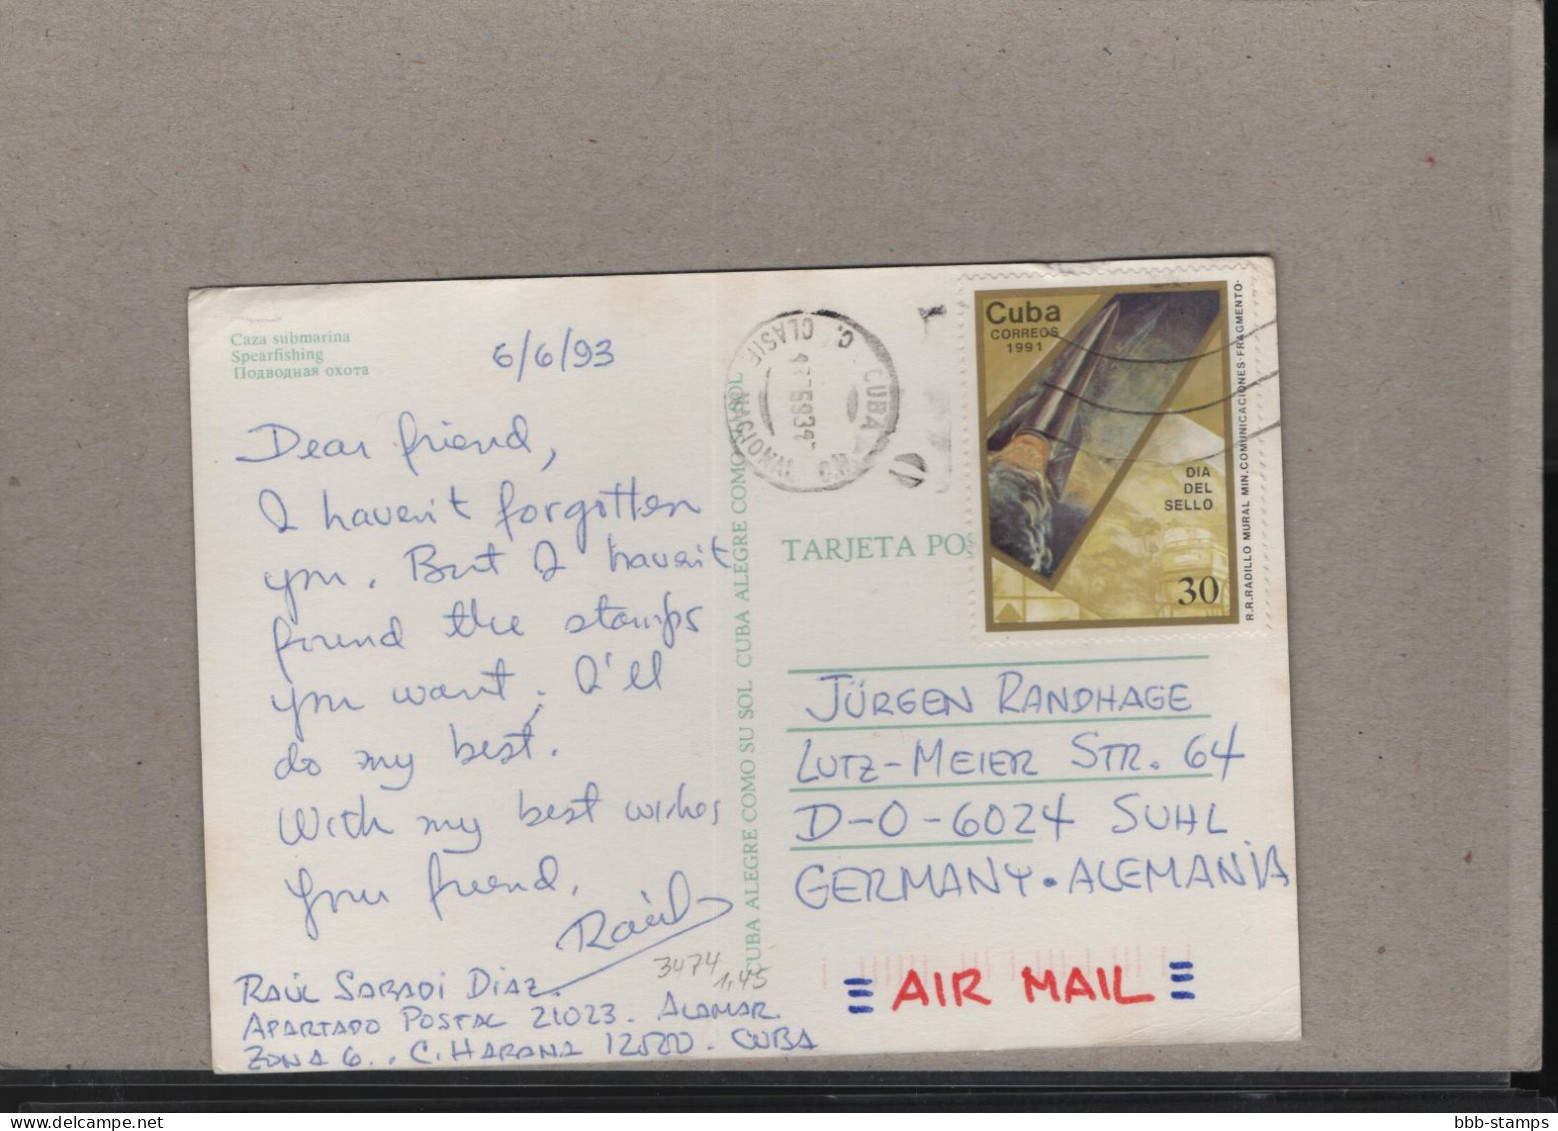 Caza submarina
Spearfishing
Подводная охота
6/6/93
Dear friend,
I haven't forgotten
you. But I haven't
found the stamps
you want. I'll
do my best.
With my best wishes
your friend,
Raúl
RAÚL SABADI DIAZ.
APARTADO POSTAL 21023. ALAMAR.
ZONA 6., C. HABANA 12500. CUBA
3474
1,45
CUBA ALEGRE COMO SU SOL CUBA ALEGRE COMO SU SOL
C. CLASIF. NACIONAL
CUBA
TARJETA POS
Cuba
CORREOS
1991
DIA
DEL
SELLO
30
R.R.RADILLO MURAL MIN.COMUNICACIONES·FRAGMENTO·
JÜRGEN RANDHAGE
LUTZ-MEIER STR. 64
D-O-6024 SUHL
GERMANY·ALEMANIA
AIR MAIL
bbb-stamps